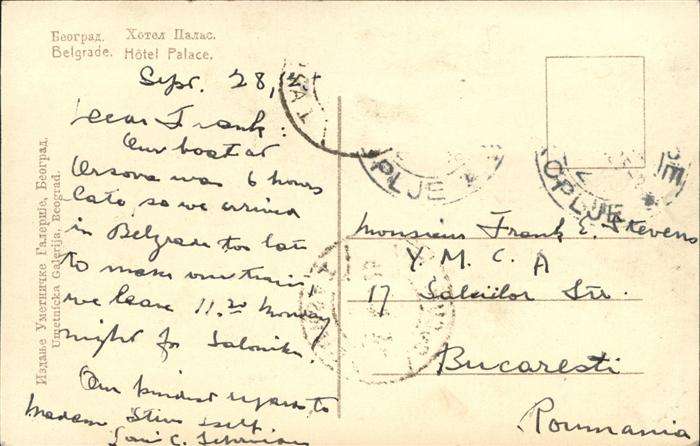 Београд. Хотел Палас.
Belgrade. Hôtel Palace.
Sept. 28,
Dear Frank:
Our boat at
Orsova was 6 hours
late, so we arrived
in Belgrade too late
to make our train,
we leave 11.20 Monday
night for Salonika.
Our kindest regards to
Madam
Издање Уметничке Галерије, Београд.
Umetnička Galerija, Beograd.
OPLJE
OPLJE
Monsieur Frank E. Stevens
Y. M. C. A
17 Str.
Bucaresti
Roumania